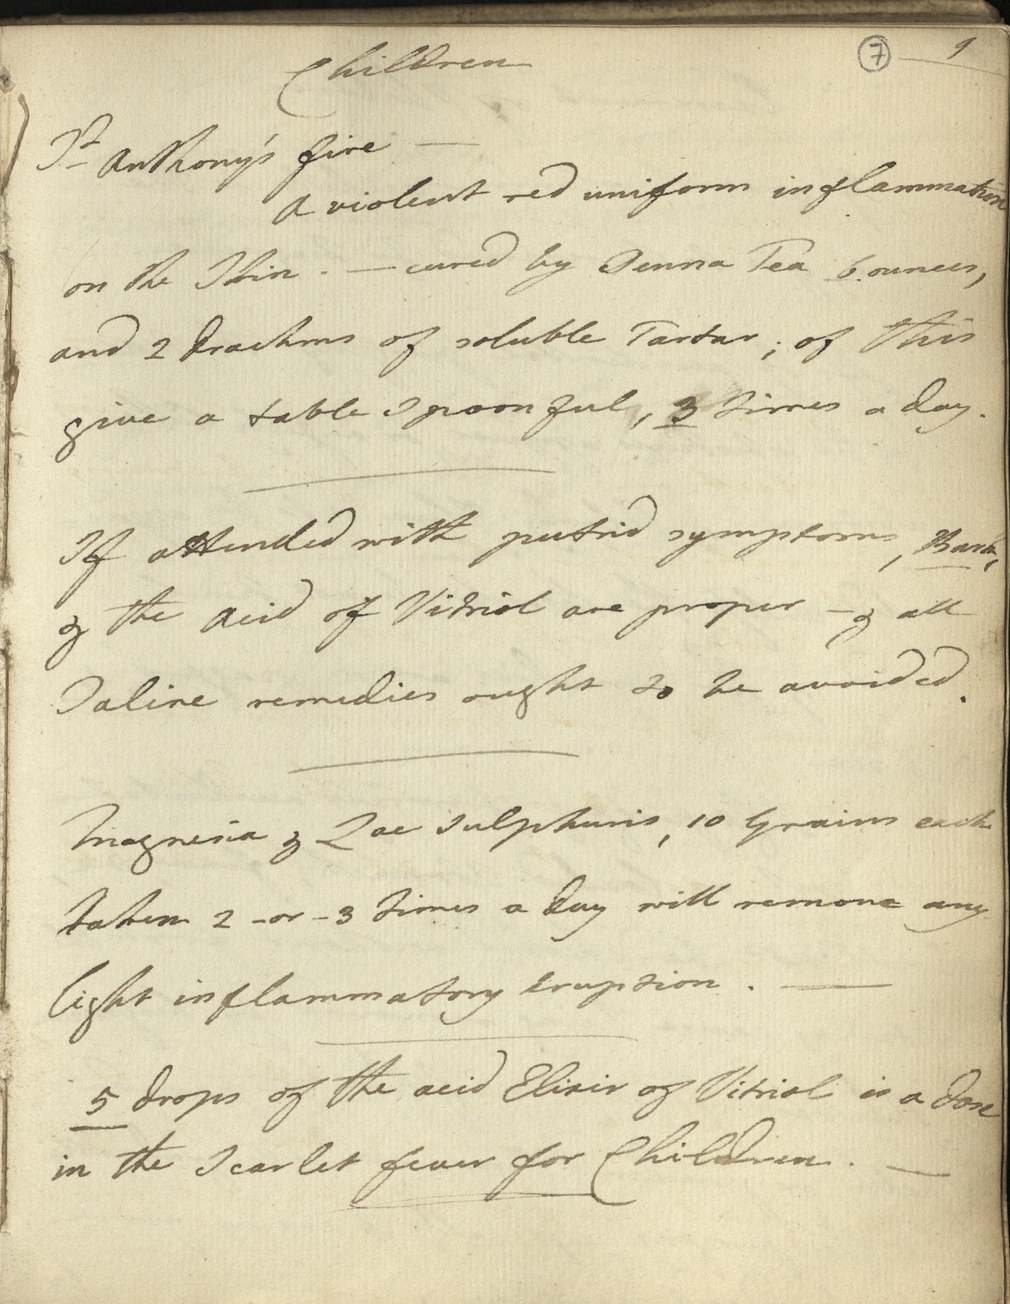 Children
7
9
St Anthony's fire —
A violent red uniform inflammation
on the Skin. — cured by Senna Tea 6 ounces,
and 2 drachms of soluble Tartar; of this
give a table Spoonful, 3 times a day.
If attended with putrid symptoms, Bark,
& the acid of Vitriol are proper — & all
Saline remedies ought to be avoided.
Magnesia & Lac Sulphuris, 10 Grains each
taken 2 -or- 3 times a day will remove any
light inflammatory Eruption. —
5 drops of the acid Elixir of Vitriol is a dose
in the Scarlet fever for Children. —